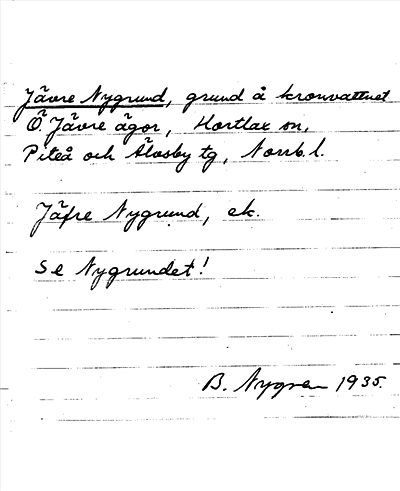 Jävre Nygrund, grund å kronvattnet
Ö. Jävre ägor, Hortlax sn,
Piteå och Älvsby tg, Norrb. l.
Jäfre Nygrund, ek.
Se Nygrundet!
B. Nygren 1935.